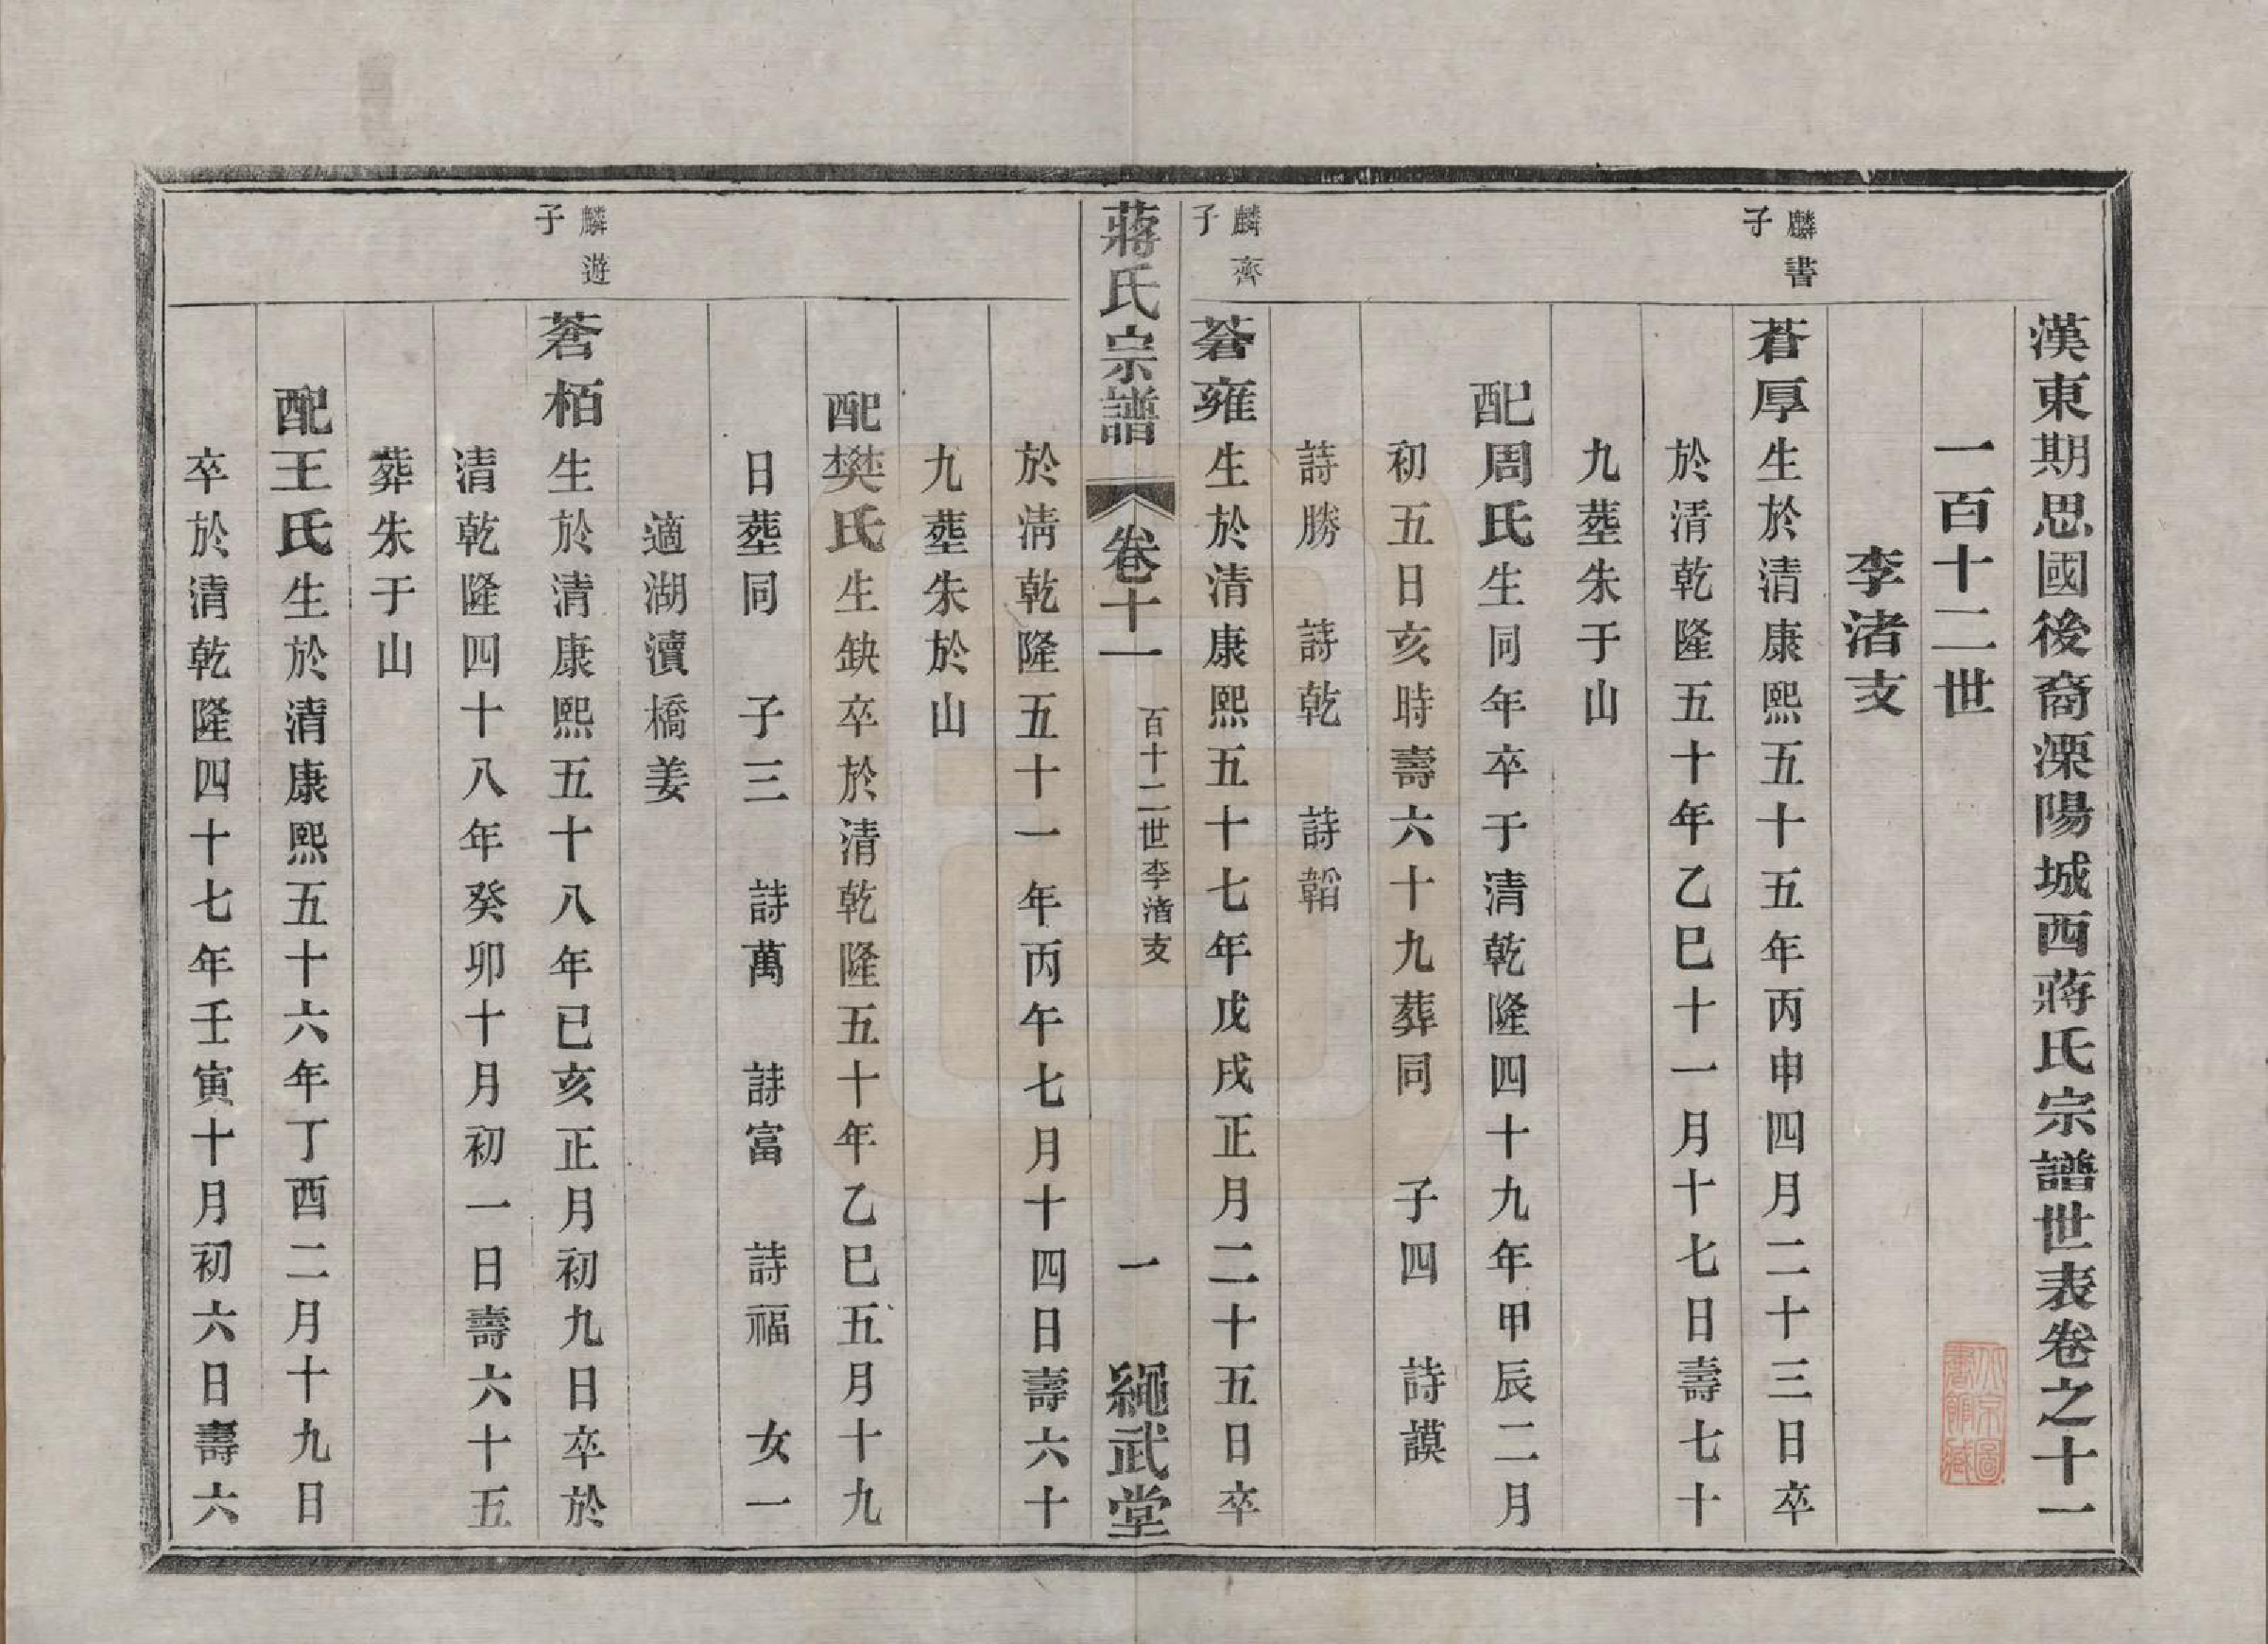 漢東期思國後裔溧陽城西蔣氏宗譜世表卷之十一
一百十二世
李渚支
麟書子
蒼厚生於清康熙五十五年丙申四月二十三日卒
於清乾隆五十年乙巳十一月十七日壽七十
九塟朱于山
配周氏生同年卒于清乾隆四十九年甲辰二月
初五日亥時壽六十九葬同　子四　詩謨
詩勝　詩乾　詩韜
麟齊子
蒼雍生於清康熙五十七年戊戌正月二十五日卒
蔣氏宗譜　卷十一　百十二世李渚支　一　繩武堂
於清乾隆五十一年丙午七月十四日壽六十
九塟朱於山
配樊氏生缺卒於清乾隆五十年乙巳五月十九
日塟同　子三　詩萬　詩富　詩福　女一
適湖瀆橋姜
麟遊子
蒼栢生於清康熙五十八年已亥正月初九日卒於
清乾隆四十八年癸卯十月初一日壽六十五
葬朱于山
配王氏生於清康熙五十六年丁酉二月十九日
卒於清乾隆四十七年壬寅十月初六日壽六
北京圖書館藏